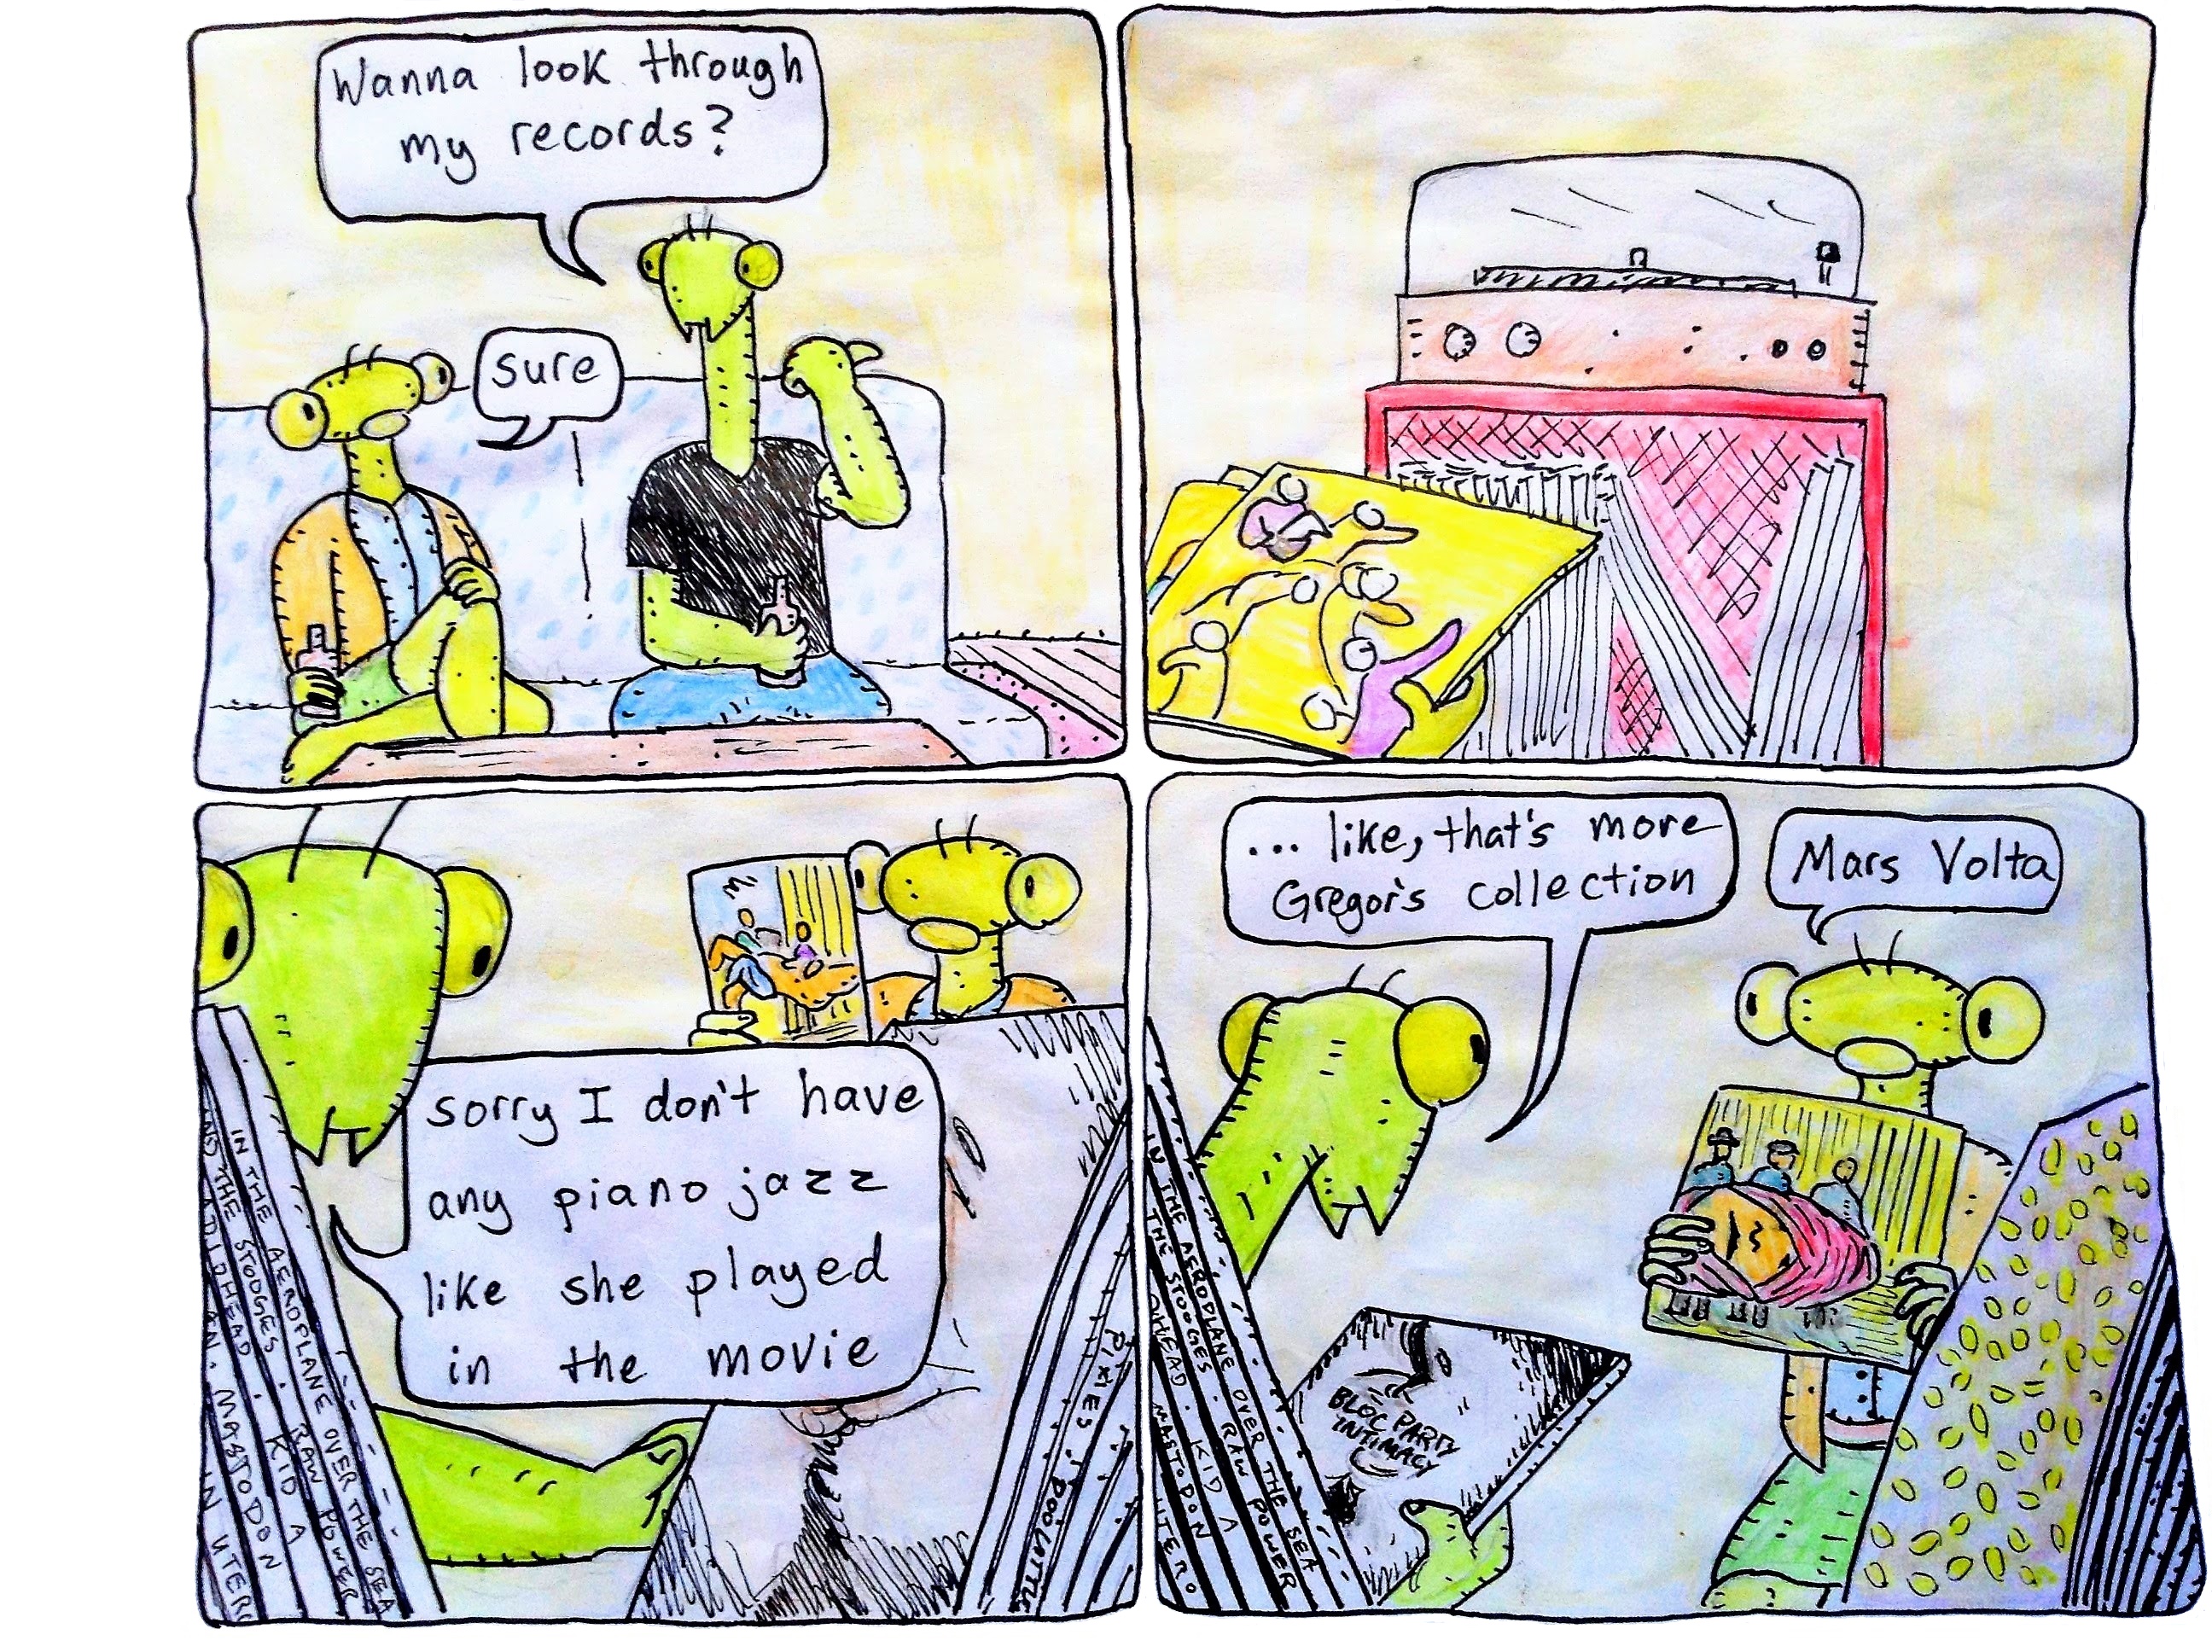 Wanna look through
my records?
sure
sorry I don't have
any piano jazz
like she played
in the movie
IN THE AEROPLANE OVER THE SEA
THE STOOGES . RAW POWER
KID A
MASTODON
IN UTERO
PIXIES . DOOLITTLE
... like, that's more
Gregor's collection
Mars Volta
IN THE AEROPLANE OVER THE SEA
THE STOOGES . RAW POWER
KID A
MASTODON
UTERO
BLOC PARTY
INTIMACY